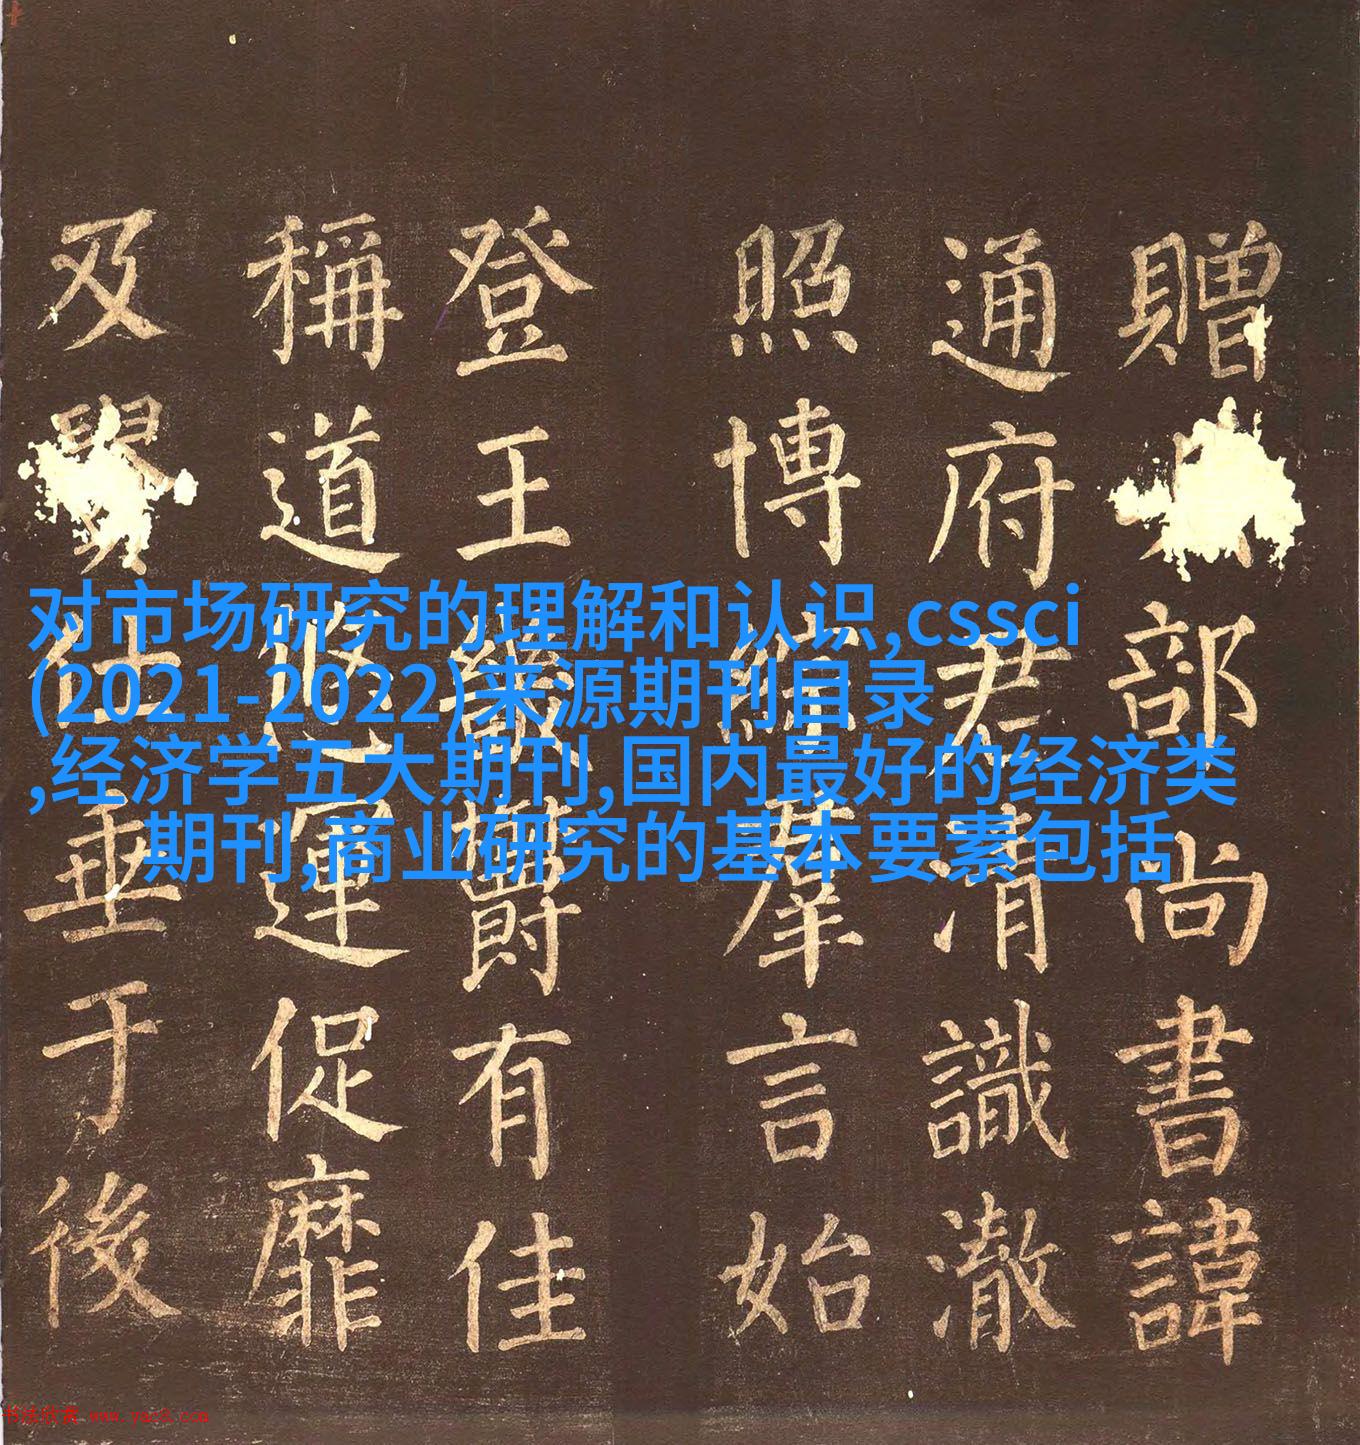 对市场研究的理解和认识,cssci
(2021-2022)来源期刊目录
,经济学五大期刊,国内最好的经济类
期刊,商业研究的基本要素包括
贈部尚書諱
通府君清識澈
照博綜羣言始
登王畿有佳
稱道悠運促靡
及仕垂于後
书法欣赏 www.yac8.com